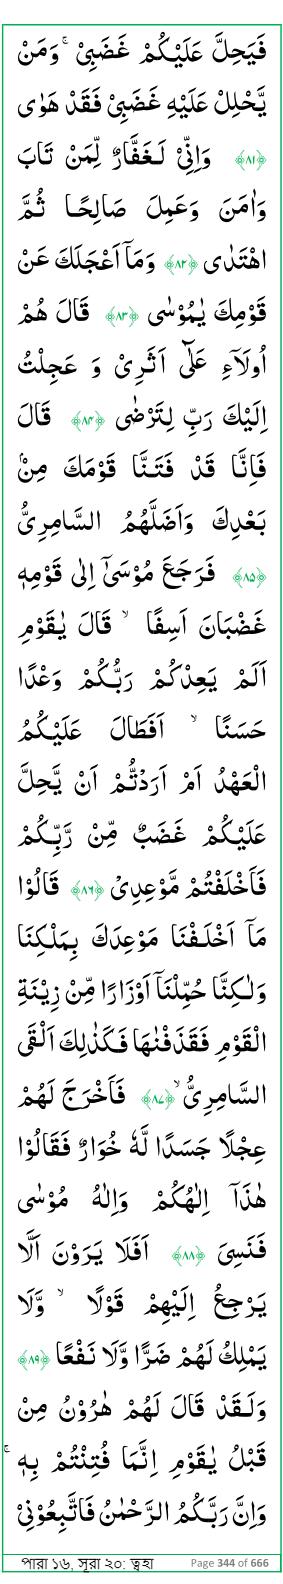 فَيَحِلَّ عَلَيْكُمْ غَضَبِىْ ۚ وَمَنْ
يَّحْلِلْ عَلَيْهِ غَضَبِىْ فَقَدْ هَوٰى
﴿۸۱﴾ وَاِنِّىْ لَـغَفَّارٌ لِّمَنْ تَابَ
وَاٰمَنَ وَعَمِلَ صَالِحًـا ثُمَّ
اهْتَدٰى ﴿۸۲﴾ وَمَاۤ اَعْجَلَكَ عَنْ
قَوْمِكَ يٰمُوْسٰى ﴿۸۳﴾ قَالَ هُمْ
اُولَاۤءِ عَلٰٓى اَثَرِىْ وَ عَجِلْتُ
اِلَيْكَ رَبِّ لِتَرْضٰى ﴿۸۴﴾ قَالَ
فَاِنَّا قَدْ فَتَـنَّا قَوْمَكَ مِنْۢ
بَعْدِكَ وَاَضَلَّهُمُ السَّامِرِىُّ
﴿۸۵﴾ فَرَجَعَ مُوْسٰٓى اِلٰى قَوْمِهٖ
غَضْبَانَ اَسِفًا ۙ قَالَ يٰقَوْمِ
اَلَمْ يَعِدْكُمْ رَبُّكُمْ وَعْدًا
حَسَنًا ۙ اَفَطَالَ عَلَيْكُمُ
الْعَهْدُ اَمْ اَرَدْتُّمْ اَنْ يَّحِلَّ
عَلَيْكُمْ غَضَبٌ مِّنْ رَّبِّكُمْ
فَاَخْلَفْتُمْ مَّوْعِدِىْ ﴿۸۶﴾ قَالُوْا
مَاۤ اَخْلَـفْنَا مَوْعِدَكَ بِمَلْكِنَا
وَلٰـكِنَّا حُمِّلْنَاۤ اَوْزَارًا مِّنْ زِيْنَةِ
الْقَوْمِ فَقَذَفْنٰهَا فَكَذٰلِكَ اَلْقَى
السَّامِرِىُّ ۙ ﴿۸۷﴾ فَاَخْرَجَ لَهُمْ
عِجْلًا جَسَدًا لَّهٗ خُوَارٌ فَقَالُوْا
هٰذَاۤ اِلٰهُكُمْ وَاِلٰهُ مُوْسٰى
فَنَسِىَ ﴿۸۸﴾ اَفَلَا يَرَوْنَ اَلَّا
يَرْجِعُ اِلَيْهِمْ قَوْلًا ۙ وَّلَا
يَمْلِكُ لَهُمْ ضَرًّا وَّلَا نَفْعًا ﴿۸۹﴾
وَلَـقَدْ قَالَ لَهُمْ هٰرُوْنُ مِنْ
قَبْلُ يٰقَوْمِ اِنَّمَا فُتِنْتُمْ بِهٖ ۚ
وَاِنَّ رَبَّكُمُ الرَّحْمٰنُ فَاتَّبِعُوْنِىْ
পারা ১৬, সূরা ২০: ত্বহা Page 344 of 666